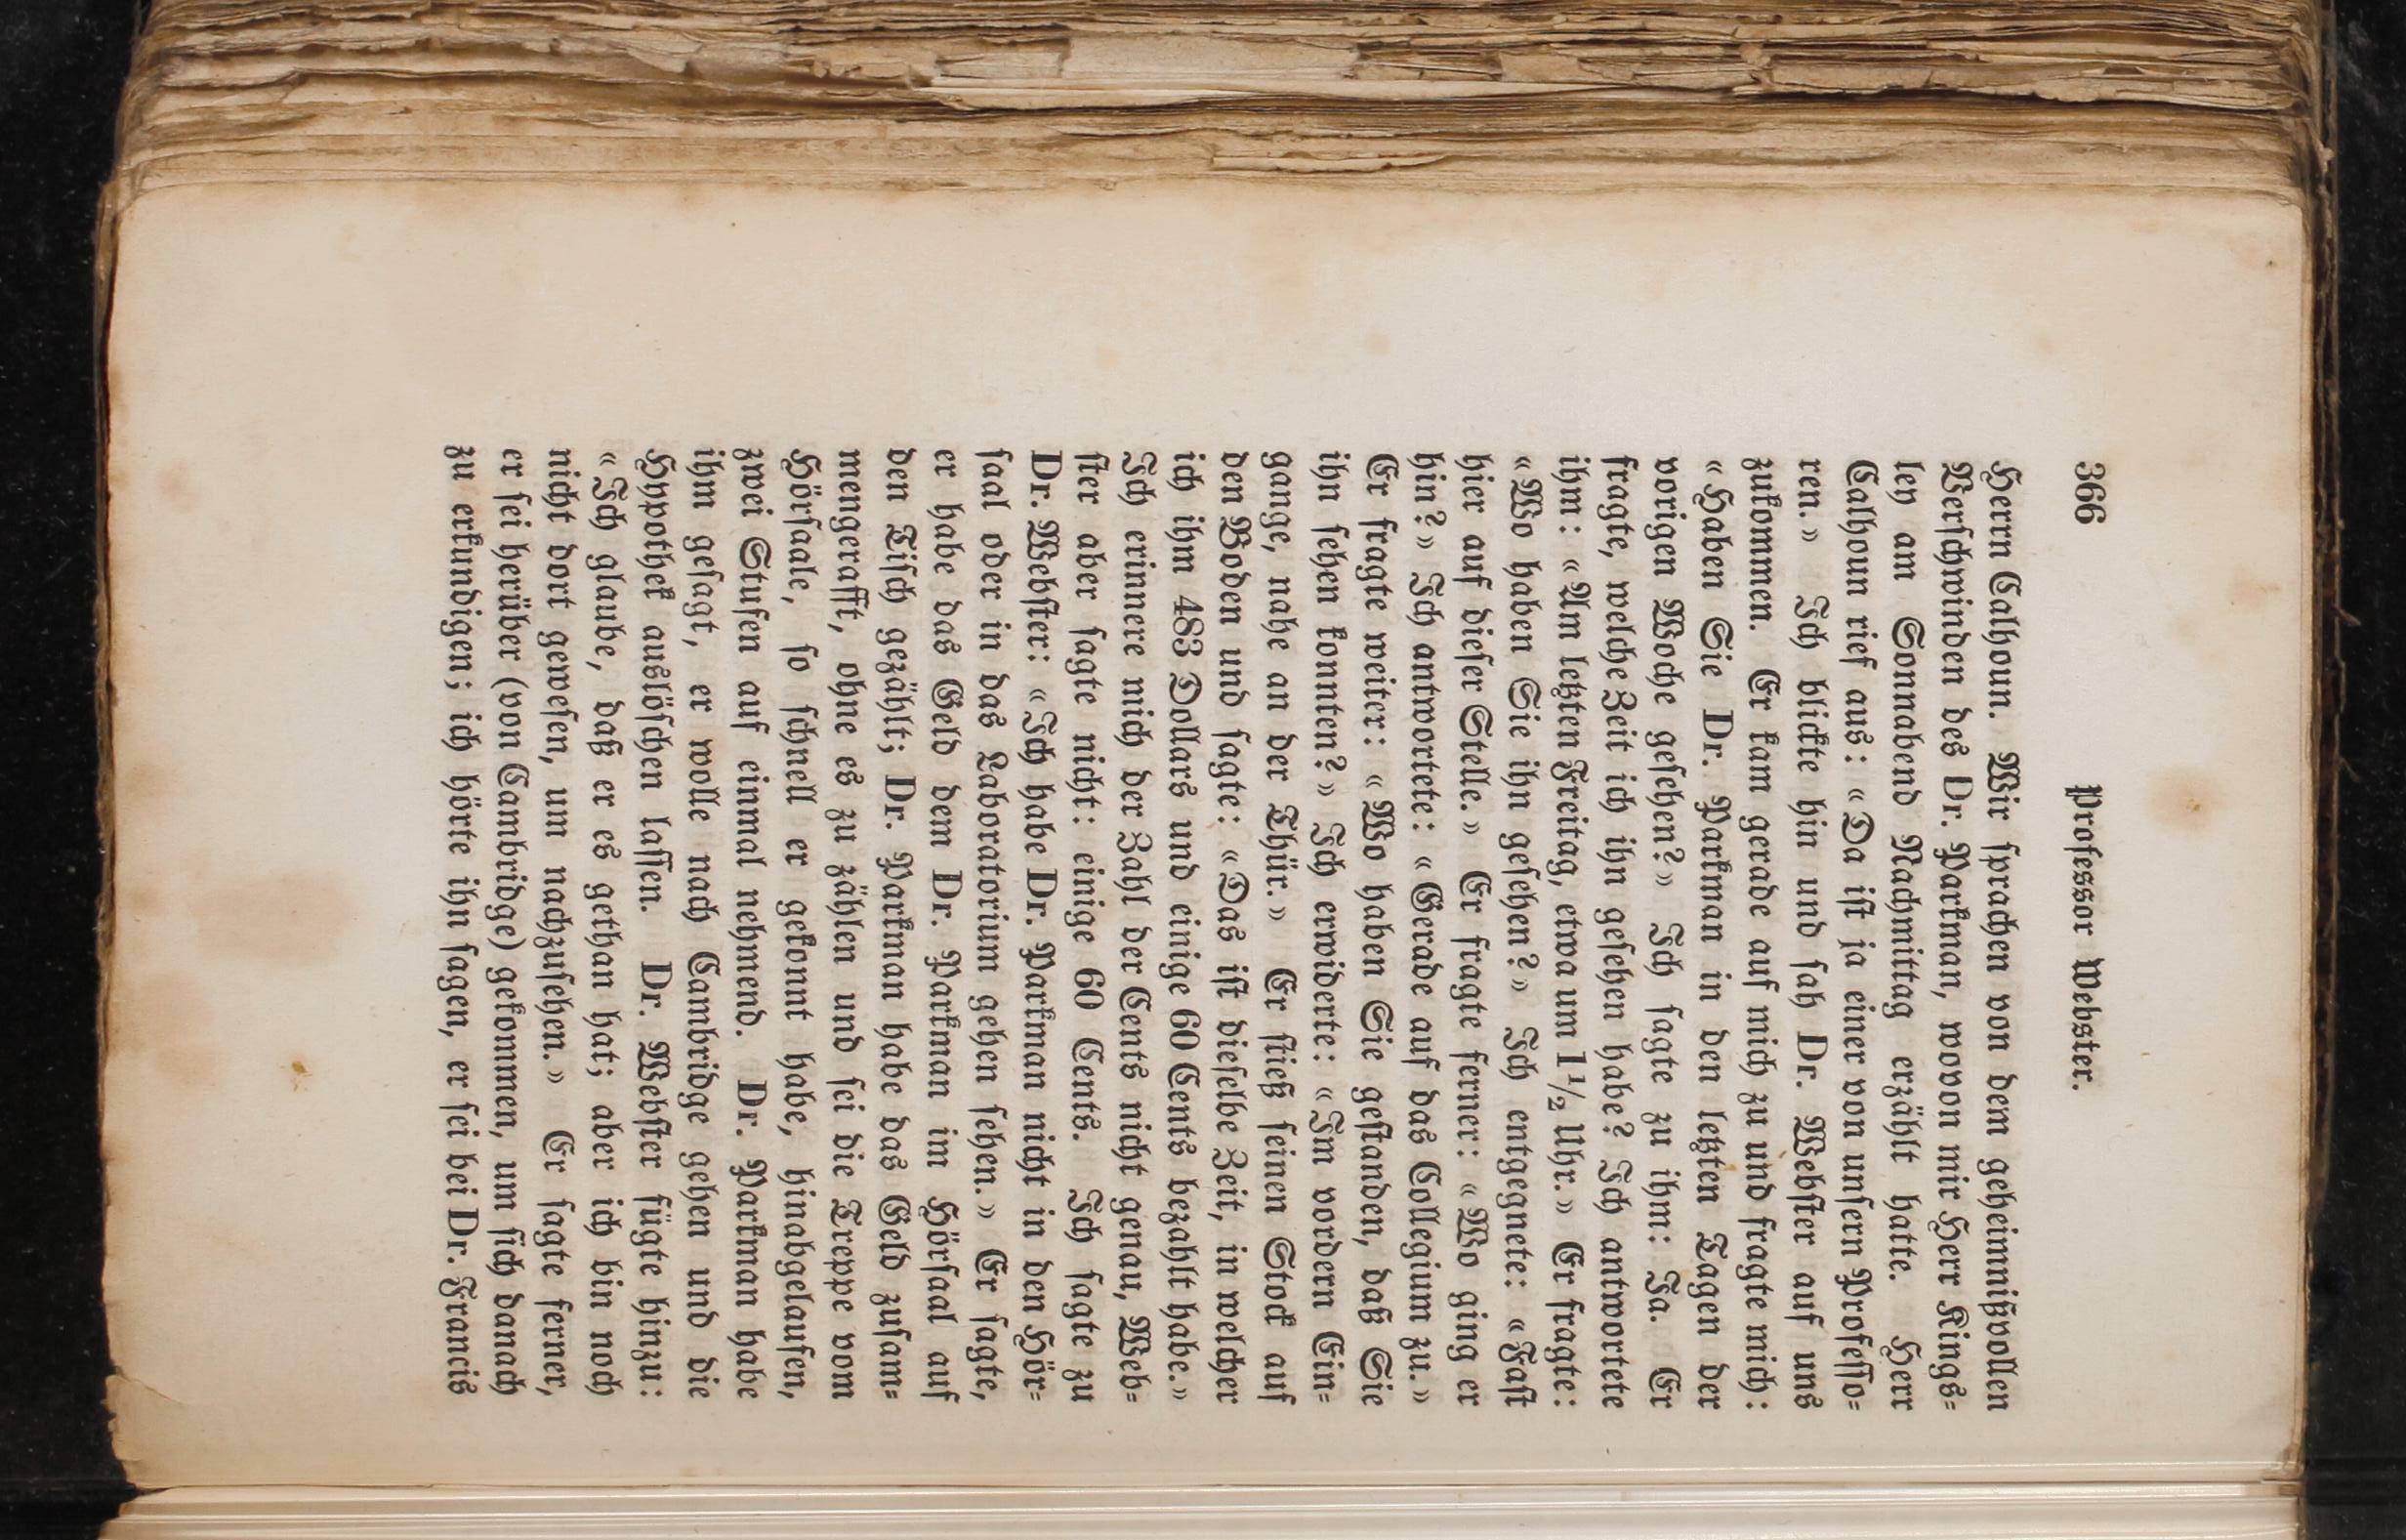 366 Professor Webster.
Herrn Calhoun. Wir sprachen von dem geheimnißvollen
Verschwinden des Dr. Parkman, wovon mir Herr Kings-
ley am Sonnabend Nachmittag erzählt hatte. Herr
Calhoun rief aus: «Da ist ja einer von unsern Professo-
ren.» Ich blickte hin und sah Dr. Webster auf uns
zukommen. Er kam gerade auf mich zu und fragte mich:
«Haben Sie Dr. Parkman in den letzten Tagen der
vorigen Woche gesehen?» Ich sagte zu ihm: Ja. Er
fragte, welche Zeit ich ihn gesehen habe? Ich antwortete
ihm: «Am letzten Freitag, etwa um 1½ Uhr.» Er fragte:
«Wo haben Sie ihn gesehen?» Ich entgegnete: «Fast
hier auf dieser Stelle.» Er fragte ferner: «Wo ging er
hin?» Ich antwortete: «Gerade auf das Collegium zu.»
Er fragte weiter: «Wo haben Sie gestanden, daß Sie
ihn sehen konnten?» Ich erwiderte: «Im vordern Ein-
gange, nahe an der Thür.» Er stieß seinen Stock auf
den Boden und sagte: «Das ist dieselbe Zeit, in welcher
ich ihm 483 Dollars und einige 60 Cents bezahlt habe.»
Ich erinnere mich der Zahl der Cents nicht genau, Web-
ster aber sagte nicht: einige 60 Cents. Ich sagte zu
Dr. Webster: «Ich habe Dr. Parkman nicht in den Hör-
saal oder in das Laboratorium gehen sehen.» Er sagte,
er habe das Geld dem Dr. Parkman im Hörsaal auf
den Tisch gezählt; Dr. Parkman habe das Geld zusam-
mengerafft, ohne es zu zählen und sei die Treppe vom
Hörsaale, so schnell er gekonnt habe, hinabgelaufen,
zwei Stufen auf einmal nehmend. Dr. Parkman habe
ihm gesagt, er wolle nach Cambridge gehen und die
Hypothek auslöschen lassen. Dr. Webster fügte hinzu:
«Ich glaube, daß er es gethan hat; aber ich bin noch
nicht dort gewesen, um nachzusehen.» Er sagte ferner,
er sei herüber (von Cambridge) gekommen, um sich danach
zu erkundigen; ich hörte ihn sagen, er sei bei Dr. Francis